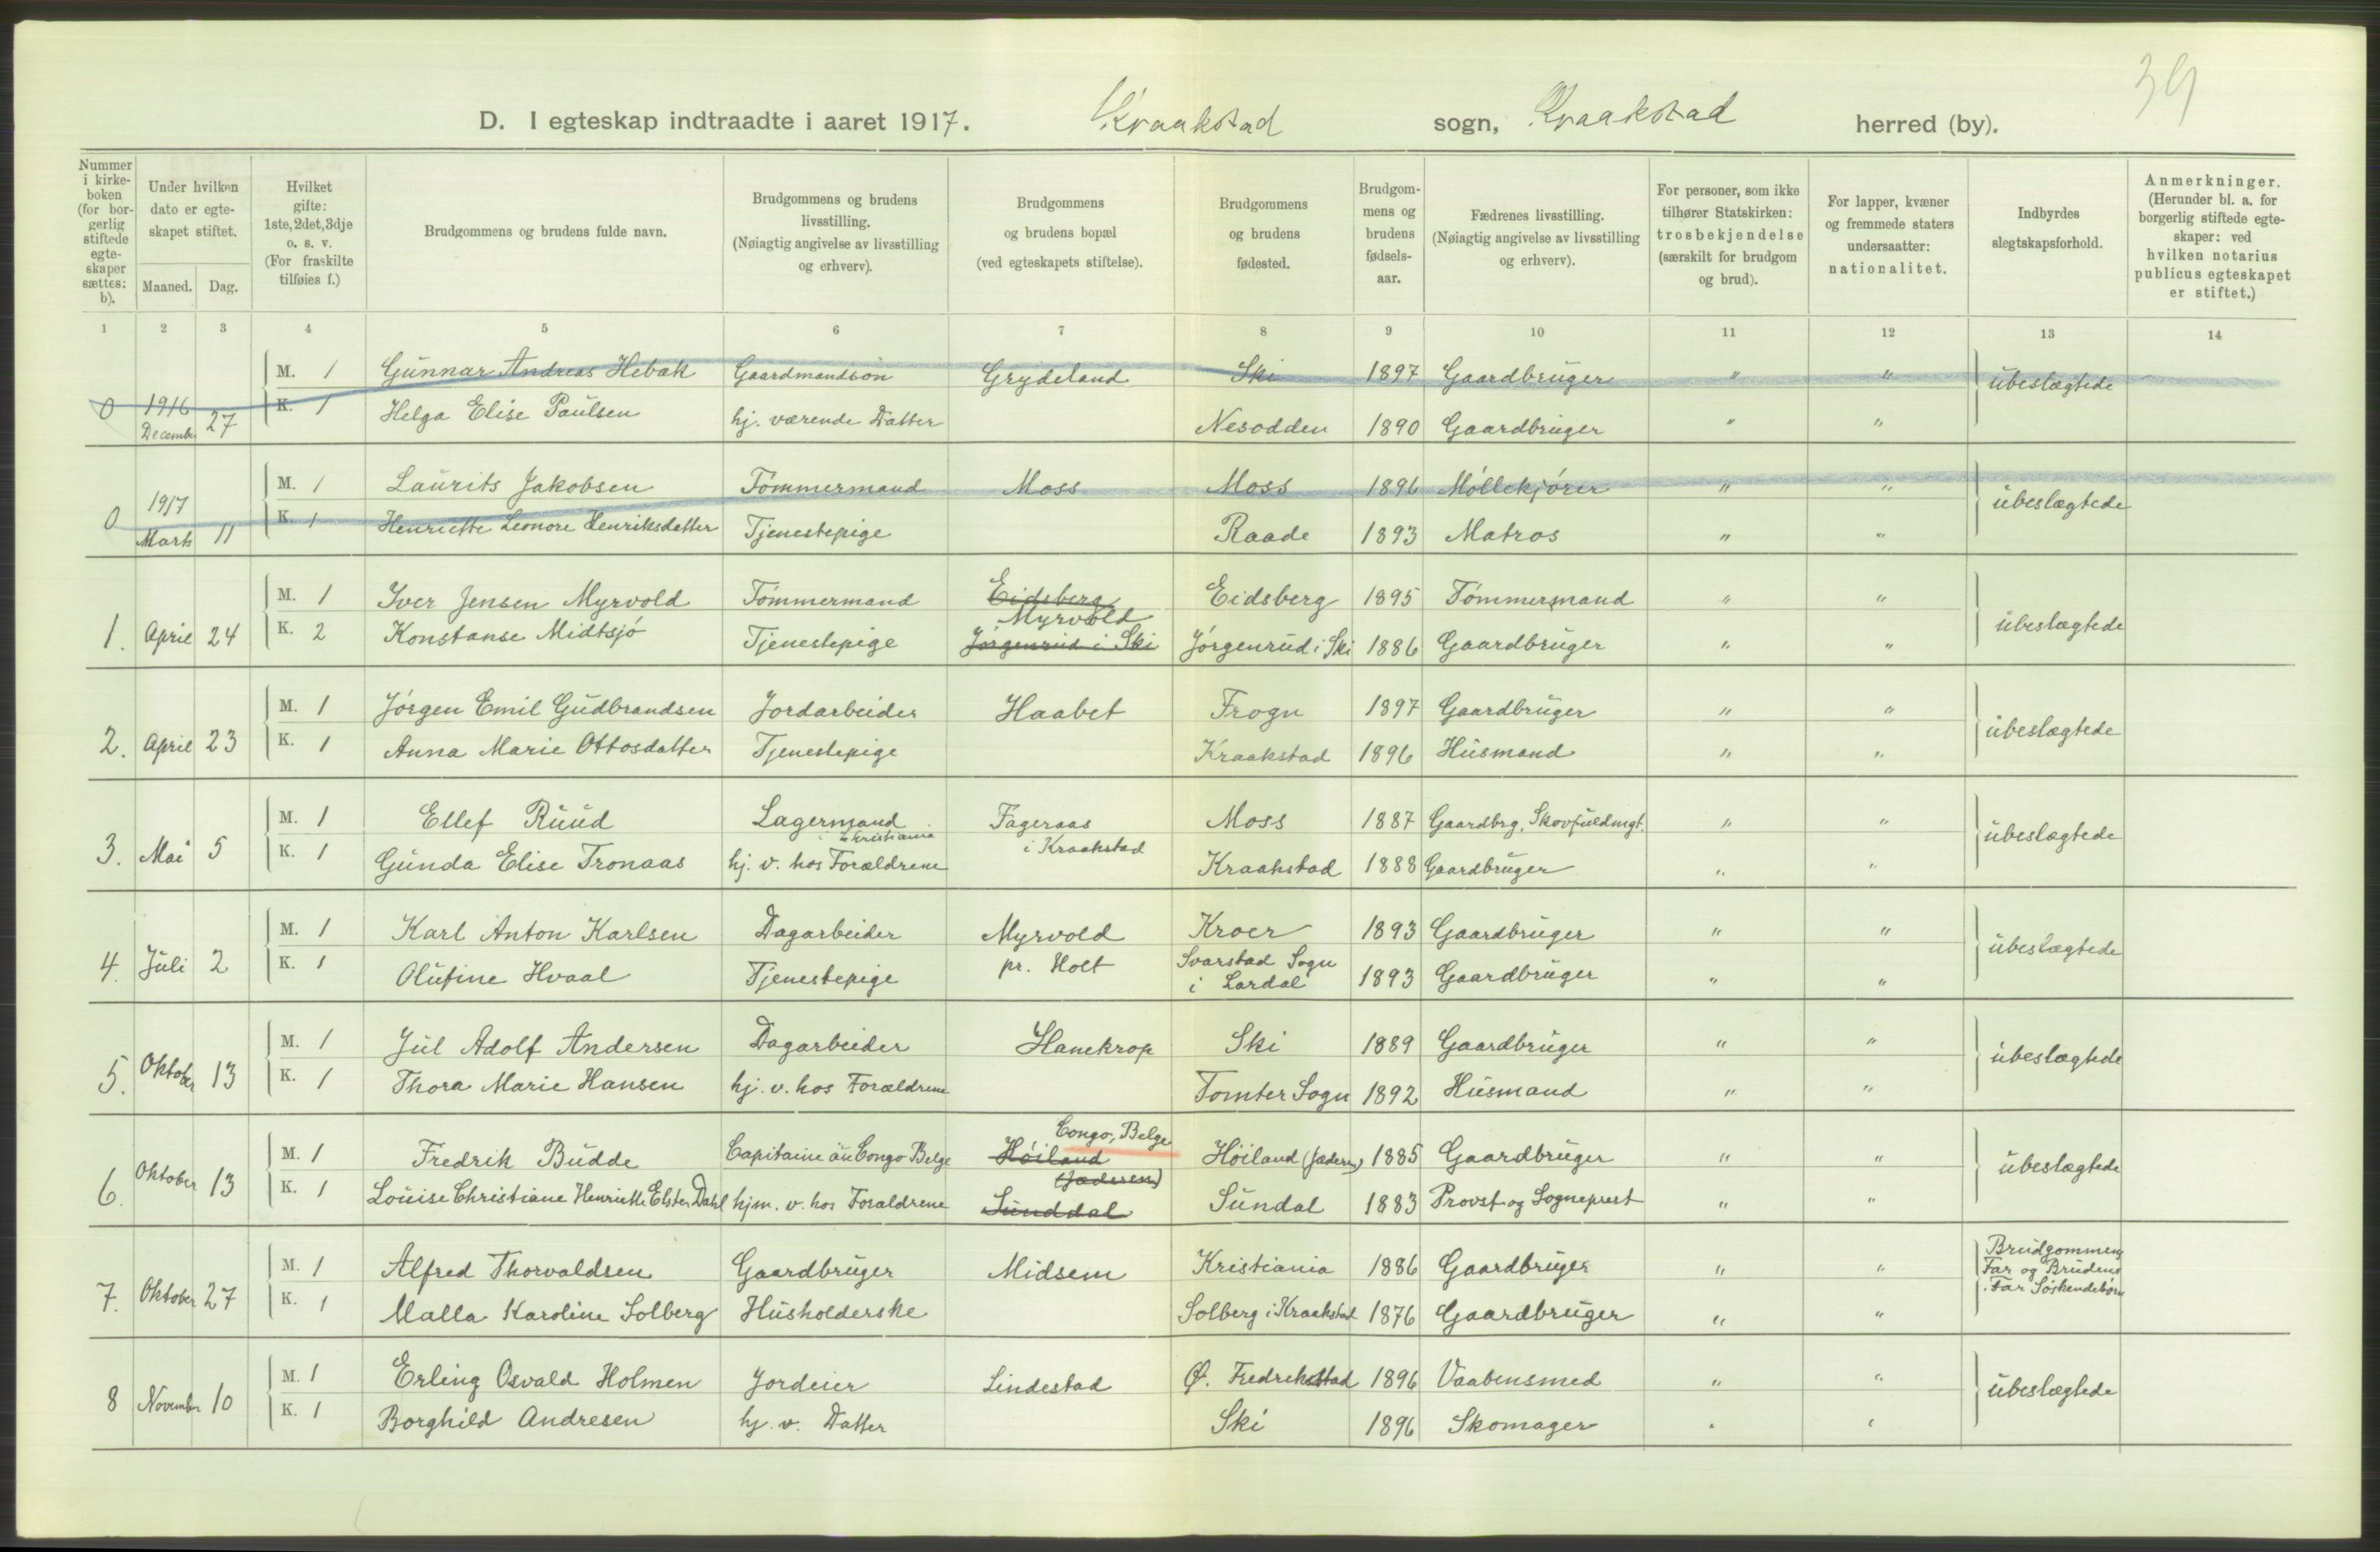 39
D. I egteskap indtraadte i aaret 1917. Kraakstad sogn, Kraakstad herred (by).
Nummer i kirke- boken (for bor- gerlig stiftede egte- skaper sættes: b).
Under hvilken dato er egte- skapet stiftet. Maaned. Dag.
Hvilket gifte: 1ste, 2det, 3dje o. s. v. (For fraskilte tilføies f.)
Brudgommens og brudens fulde navn.
Brudgommens og brudens livsstilling. (Nøiagtig angivelse av livsstilling og erhverv).
Brudgommens og brudens bopæl (ved egteskapets stiftelse).
Brudgommens og brudens fødested.
Brudgom- mens og brudens fødsels- aar.
Fædrenes livsstilling. (Nøiagtig angivelse av livsstilling og erhverv).
For personer, som ikke tilhører Statskirken: trosbekjendelse (særskilt for brudgom og brud).
For lapper, kvæner og fremmede staters undersaatter: nationalitet.
Indbyrdes slegtskapsforhold.
Anmerkninger. (Herunder bl. a. for borgerlig stiftede egte- skaper: ved hvilken notarius publicus egteskapet er stiftet.)
1 2 3 4 5 6 7 8 9 10 11 12 13 14
M. 1 Gunnar Andreas Hebæk Gaardmandsøn Grydeland Ski 1897 Gaardbruger " " ubeslægtede
0 1916 December 27 K. 1 Helga Elise Paulsen hj. værende Datter Nesodden 1890 Gaardbruger " "
M. 1 Laurits Jakobsen Tömmermand Moss Moss 1896 Möllekjörer " " ubeslægtede
0 1917 Marts 11 K. 1 Henriette Leonore Henriksdatter Tjenestepige Raade 1893 Matros " "
M. 1 Iver Jensen Myrvold Tömmermand Eidsberg Myrvold Eidsberg 1895 Tömmermand " " ubeslægtede
1. April 24 K. 2 Konstanse Midtsjö Tjenestepige Jörgenrud i Ski Jörgenrud i Ski 1886 Gaardbruger " "
M. 1 Jörgen Emil Gudbrandsen Jordarbeider Haabet Frogn 1897 Gaardbruger " " ubeslægtede
2. April 23 K. 1 Anna Marie Ottosdatter Tjenestepige Kraakstad 1896 Husmand " "
M. 1 Ellef Ruud Lagermand i Christiania Fageraas i Kraakstad Moss 1887 Gaardbrg, Skovfuldmgt. " " ubeslægtede
3. Mai 5 K. 1 Gunda Elise Tronaas hj. v. hos Forældrene Kraakstad 1888 Gaardbruger " "
M. 1 Karl Anton Karlsen Dagarbeider Myrvold pr. Holt Kroer 1893 Gaardbruger " " ubeslægtede
4. Juli 2 K. 1 Olufine Hvaal Tjenestepige Svarstad Sogn i Lardal 1893 Gaardbruger " "
M. 1 Jul Adolf Andersen Dagarbeider Hanekrop Ski 1889 Gaardbruger " " ubeslægtede
5. Oktober 13 K. 1 Thora Marie Hansen hj. v. hos Forældrene Tomter Sogn 1892 Husmand " "
M. 1 Fredrik Budde Capitaine au Congo Belge Congo, Belge Höiland (Jaderen) Höiland (Jaderen) 1885 Gaardbruger " " ubeslægtede
6. Oktober 13 K. 1 Louise Christiane Henriette Elster Dahl hjm. v. hos Forældrene Sunddal Sundal 1883 Provst og Sogneprest " "
M. 1 Alfred Thorvaldsen Gaardbruger Midsem Kristiania 1886 Gaardbruger " " Brudgommens Far og Brudens Far Söskendebörn
7. Oktober 27 K. 1 Malla Karoline Solberg Husholderske Solberg i Kraakstad 1876 Gaardbruger " "
M. 1 Erling Osvald Holmen Jordeier Lindestad Ø. Fredrikstad 1896 Vaabensmed " " ubeslægtede
8 November 10 K. 1 Borghild Andresen hj. v. Datter Ski 1896 Skomager " "